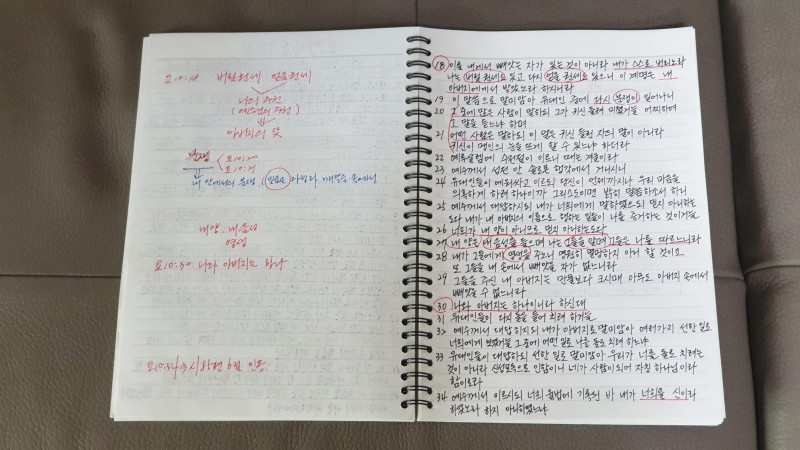 요10:18 버릴권세 얻을권세
나의 주권
(예수님의 주권)
아버지의 뜻
분쟁
요10:20
요10:21
내 안에서의 분쟁
내양: 내음성
영생
요10:30 나와 아버지는 하나
요10:34 시 82편 6절 인용
18 이를 내게서 빼앗는 자가 있는 것이 아니라 내가 스스로 버리노라
나는 버릴 권세도 있고 다시 얻을 권세도 있으니 이 계명은 내
아버지에게서 받았노라 하시니라
19 이 말씀으로 말미암아 유대인 중에 다시 분쟁이 일어나니
20 그 중에 많은 사람이 말하되 그가 귀신 들려 미쳤거늘 어찌하여
그 말을 듣느냐 하며
21 어떤 사람은 말하되 이 말은 귀신 들린 자의 말이 아니라
귀신이 맹인의 눈을 뜨게 할 수 있느냐 하더라
22 예루살렘에 수전절이 이르니 때는 겨울이라
23 예수께서 성전 안 솔로몬 행각에서 거니시니
24 유대인들이 에워싸고 이르되 당신이 언제까지나 우리 마음을
의혹하게 하려 하나이까 그리스도이면 밝히 말씀하소서 하니
25 예수께서 대답하시되 내가 너희에게 말하였으되 믿지 아니하는
도다 내가 내 아버지의 이름으로 행하는 일들이 나를 증거하는 것이거늘
26 너희가 내 양이 아니므로 믿지 아니하는도다
27 내 양은 내 음성을 들으며 나는 그들을 알며 그들은 나를 따르느니라
28 내가 그들에게 영생을 주노니 영원히 멸망하지 아니 할 것이요
또 그들을 내 손에서 빼앗을 자가 없느니라
29 그들을 주신 내 아버지는 만물보다 크시매 아무도 아버지 손에서
빼앗을 수 없느니라
30 나와 아버지는 하나이니라 하신대
31 유대인들이 다시 돌을 들어 치려 하거늘
32 예수께서 대답하시되 내가 아버지로 말미암아 여러가지 선한 일로
너희에게 보였거늘 그 중에 어떤 일로 나를 돌로 치려 하느냐
33 유대인들이 대답하되 선한 일로 말미암아 우리가 너를 돌로 치려는
것이 아니라 신성모독으로 인함이니 네가 사람이 되어 자칭 하나님이라
함이로라
34 예수께서 이르시되 너희 율법에 기록된 바 내가 너희를 신이라
하였노라 하지 아니하였느냐